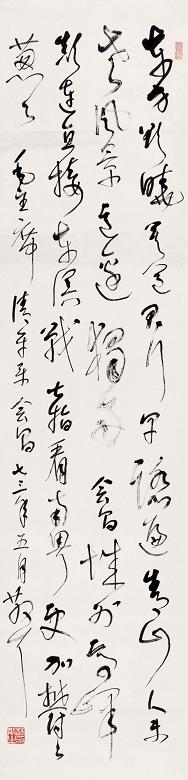 东方欲晓莫道君行早踏遍青山人未
老风景这边独好会昌城外高峰
颠连直接东溟战士指看南粤更加郁郁
葱葱毛主席清平乐会昌七三年五月